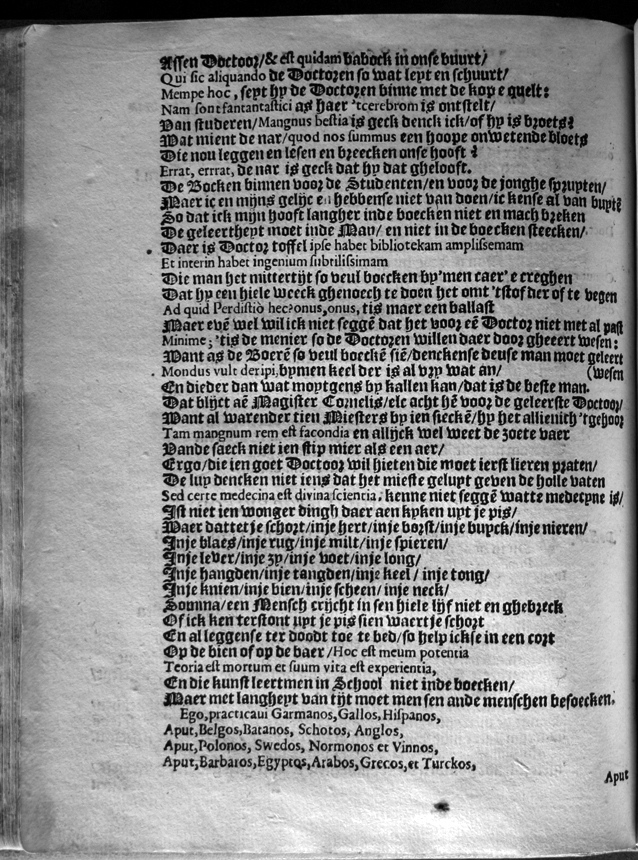 Assen Doctoor/& est quidam babock in onse buurt/
Qui sic aliquando de Doctoren so wat leyt en schuurt/
Mempe hoc, seyt hy de Doctoren binne met de kop e quelt:
Nam sont fantantastici as haer 'tcerebrom is ontstelt/
Van studeren/Mangnus bestia is geck denck ick/of hy is broets?
Wat mient de nar/quod nos summus een hoope onwetende bloets
Die nou leggen en lesen en breecken onse hooft?
Errat, errrat, de nar is geck dat hy dat ghelooft.
De Bocken binnen voor de Studenten/en voor de jonghe spruyten/
Maer ic en mijns gelijc en hebbense niet van doen/ic kense al van buytē
So dat ick mijn hooft langher inde boecken niet en mach breken
De geleertheyt moet inde Man/ en niet in de boecken steecken/
Daer is Doctor toffel ipse habet bibliotekam amplissemam
Et interin habet ingenium subtilissimam
Die man het mittertijt so veul boecken by'men caer' e creghen
Dat hy een hiele weeck ghenoech te doen het omt 'tstof der of te vegen
Ad quid Perdistiò hec?onus, onus, tis maer een ballast
Maer evē wel wil ick niet seggē dat het voor eē Doctor niet met al past
Minime; 'tis de menier so de Doctoren willen daer door gheeert wesen:
Want as de Boerē so veul boeckē siē/denckense deuse man moet geleert
Mondus vult deripi, bymen keel der is al vry wat an/ (wesen
En dieder dan wat moytgens by kallen kan/dat is de beste man.
Dat blijct aē Magister Cornelis/elc acht hē voor de geleerste Doctoor/
Want al warender tien Miesters by ien sieckē/hy het allienich 'tgehoor
Tam mangnum rem est facondia en allijck wel weet de zoete vaer
Vande saeck niet ien stip mier als een aer/
Ergo/die ien goet Doctoor wil hieten die moet ierst lieren praten/
De luy dencken niet iens dat het mieste geluyt geven de holle vaten
Sed certe medecina est divina sciencia, kenne niet seggē watte medecyne is/
Ist niet ien wonger dingh daer aen kyken uyt je pis/
Maer dattet je schort/inje hert/inje borst/inje buyck/inje nieren/
Inje blaes/inje rug/inje milt/inje spieren/
Inje lever/inje zy/inje voet/inje long/
Inje hangden/inje tangden/inje keel/ inje tong/
Inje knien/inje bien/inje scheen/ inje neck/
Somna/een Mensch crijcht in sen hiele lijf niet en ghebreck
Of ick ken terstont uyt je pis sien waert je schort
En al leggense ter doodt toe te bed/so help ickse in een cort
Op de bien of op de baer/Hoc est meum potentia
Teoria est mortum et suum vita est experientia,
En die kunst leertmen in School niet inde boecken/
Maer met langheyt van tijt moet men sen ande menschen besoecken.
Ego, practicaui Garmanos, Gallos, Hispanos,
Aput, Belgos, Batanos, Schotos, Anglos,
Aput, Polonos, Swedos, Normonos et Vinnos,
Aput, Barbaros, Egyptos, Arabos, Grecos, et Turckos,
Aput